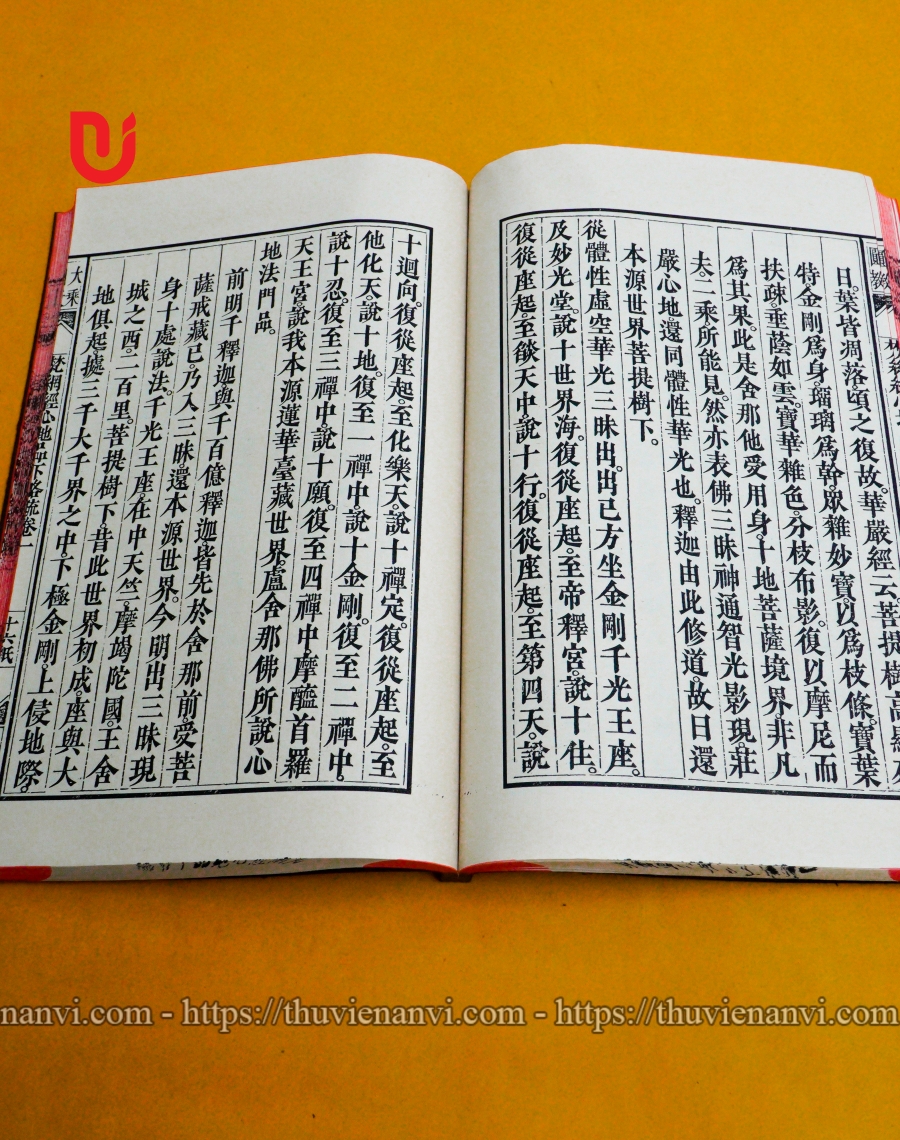 日。葉皆凋落。頃之復故。華嚴經云。菩提樹高顯
特。金剛爲身。瑠璃爲幹。眾雜妙寶。以爲枝條。寶葉
扶疎。垂蔭如雲。寶華雜色。分枝布影。復以摩尼而
爲其果。此是舍那他受用身。十地菩薩境界。非凡
夫二乘所能見。然亦表佛三昧神通智光影現。莊
嚴心地。還同體性華光也。釋迦由此修道。故日還
本源世界菩提樹下。
從體性虛空華光三昧出。出已方坐金剛千光王座。
及妙光堂。說十世界海。復從座起。至帝釋宮。說十住。
復從座起。至燄天中。說十行。復從座起。至第四天。說
十迴向。復從座起。至化樂天。說十禪定。復從座起。至
他化天。說十地。復至一禪中。說十金剛。復至二禪中。
說十忍。復至三禪中。說十願。復至四禪中。摩醯首羅
天王宮。說我本源蓮華臺藏世界。盧舍那佛所說心
地法門品。
前明千釋迦與千百億釋迦皆先於舍那前。受菩
薩戒藏已。乃入三昧還本源世界。今明出三昧現
身十處說法。千光王座。在中天竺。摩竭陀國王舍
城之西。二百里。菩提樹下。昔此世界初成。座與大
地俱起。據三千大千界之中。下極金剛。上侵地際。
大乘
梵網經心地品下略疏卷一
十六紙
https://thuvienanvi.com - https://thuvienanvi.com